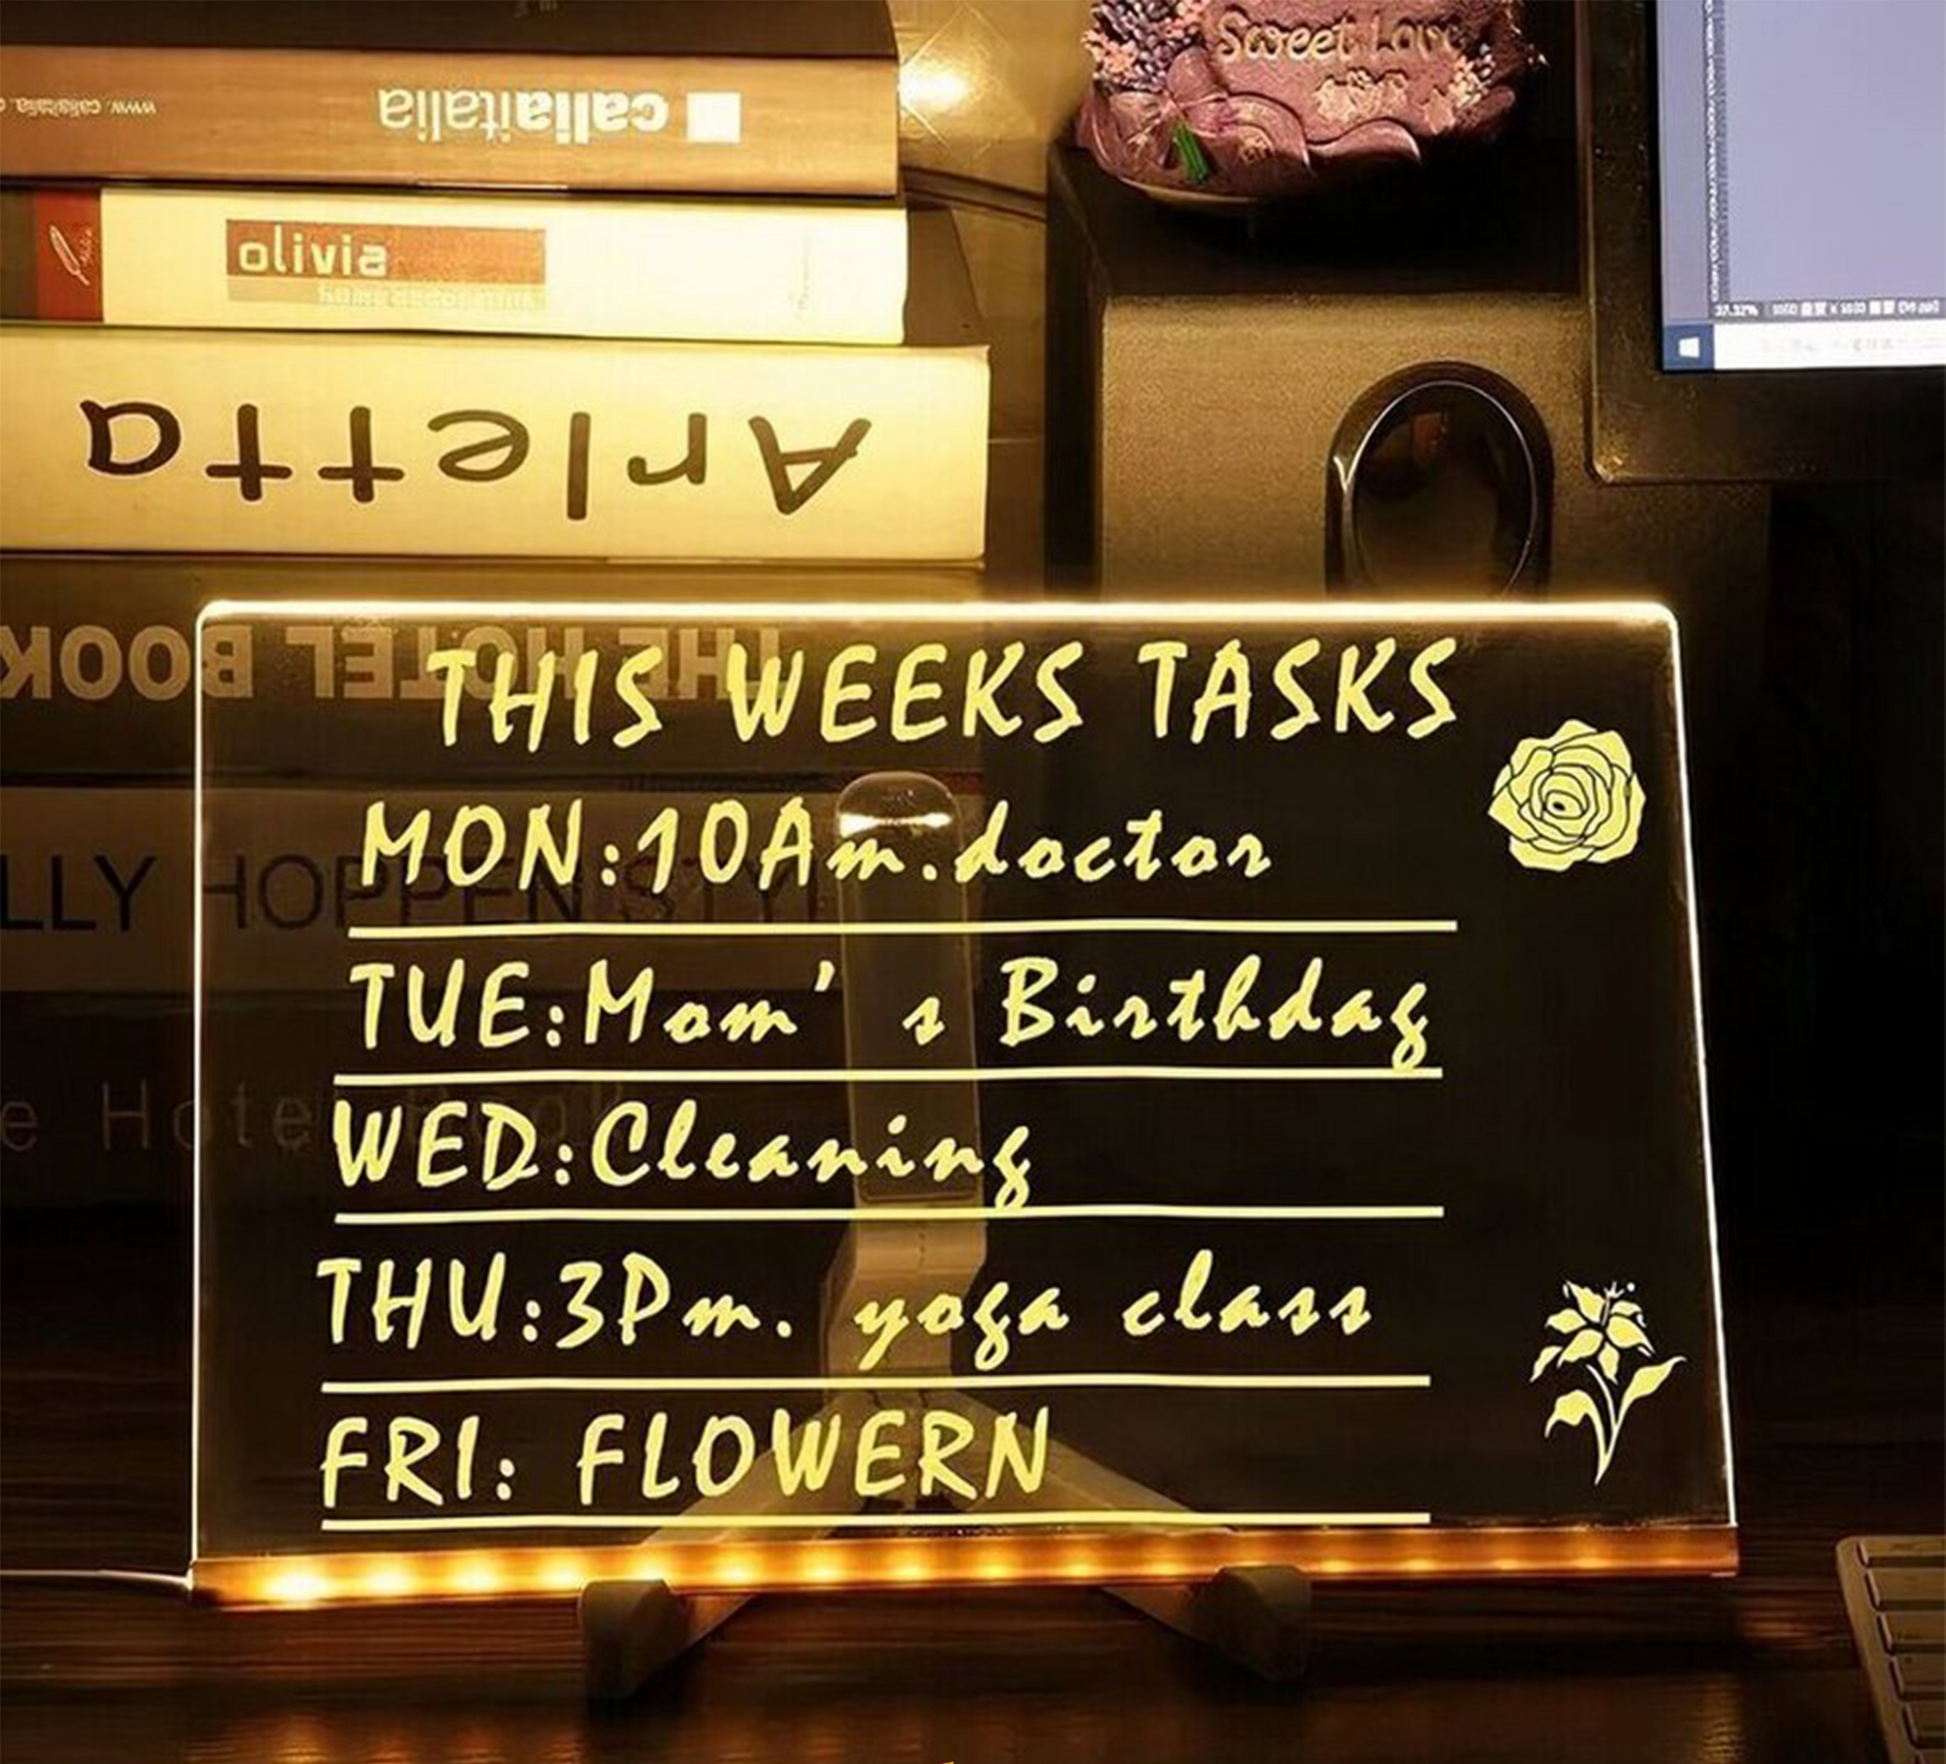 caliaitalia
olivia
Arletta
THE HOTEL BOOK
LLY HOPPEN STYL
e Hotel
Sweet Love
37.52%
THIS WEEKS TASKS
MON:10Am.doctor
TUE:Mom's Birthday
WED:Cleaning
THU:3Pm. yoga class
FRI: FLOWERN